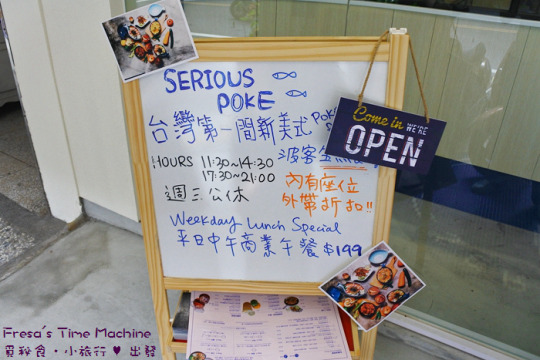 SERIOUS
POKE
台灣第一間新美式 POK
波客
HOURS 11:30~14:30
17:30~21:00
週三公休
內有座位
外帶折扣!!
Weekday Lunch Special
平日中午商業午餐 $199
Come in WE'RE
OPEN
Fresa's Time Machine
覓秘食・小旅行 ♥ 出發